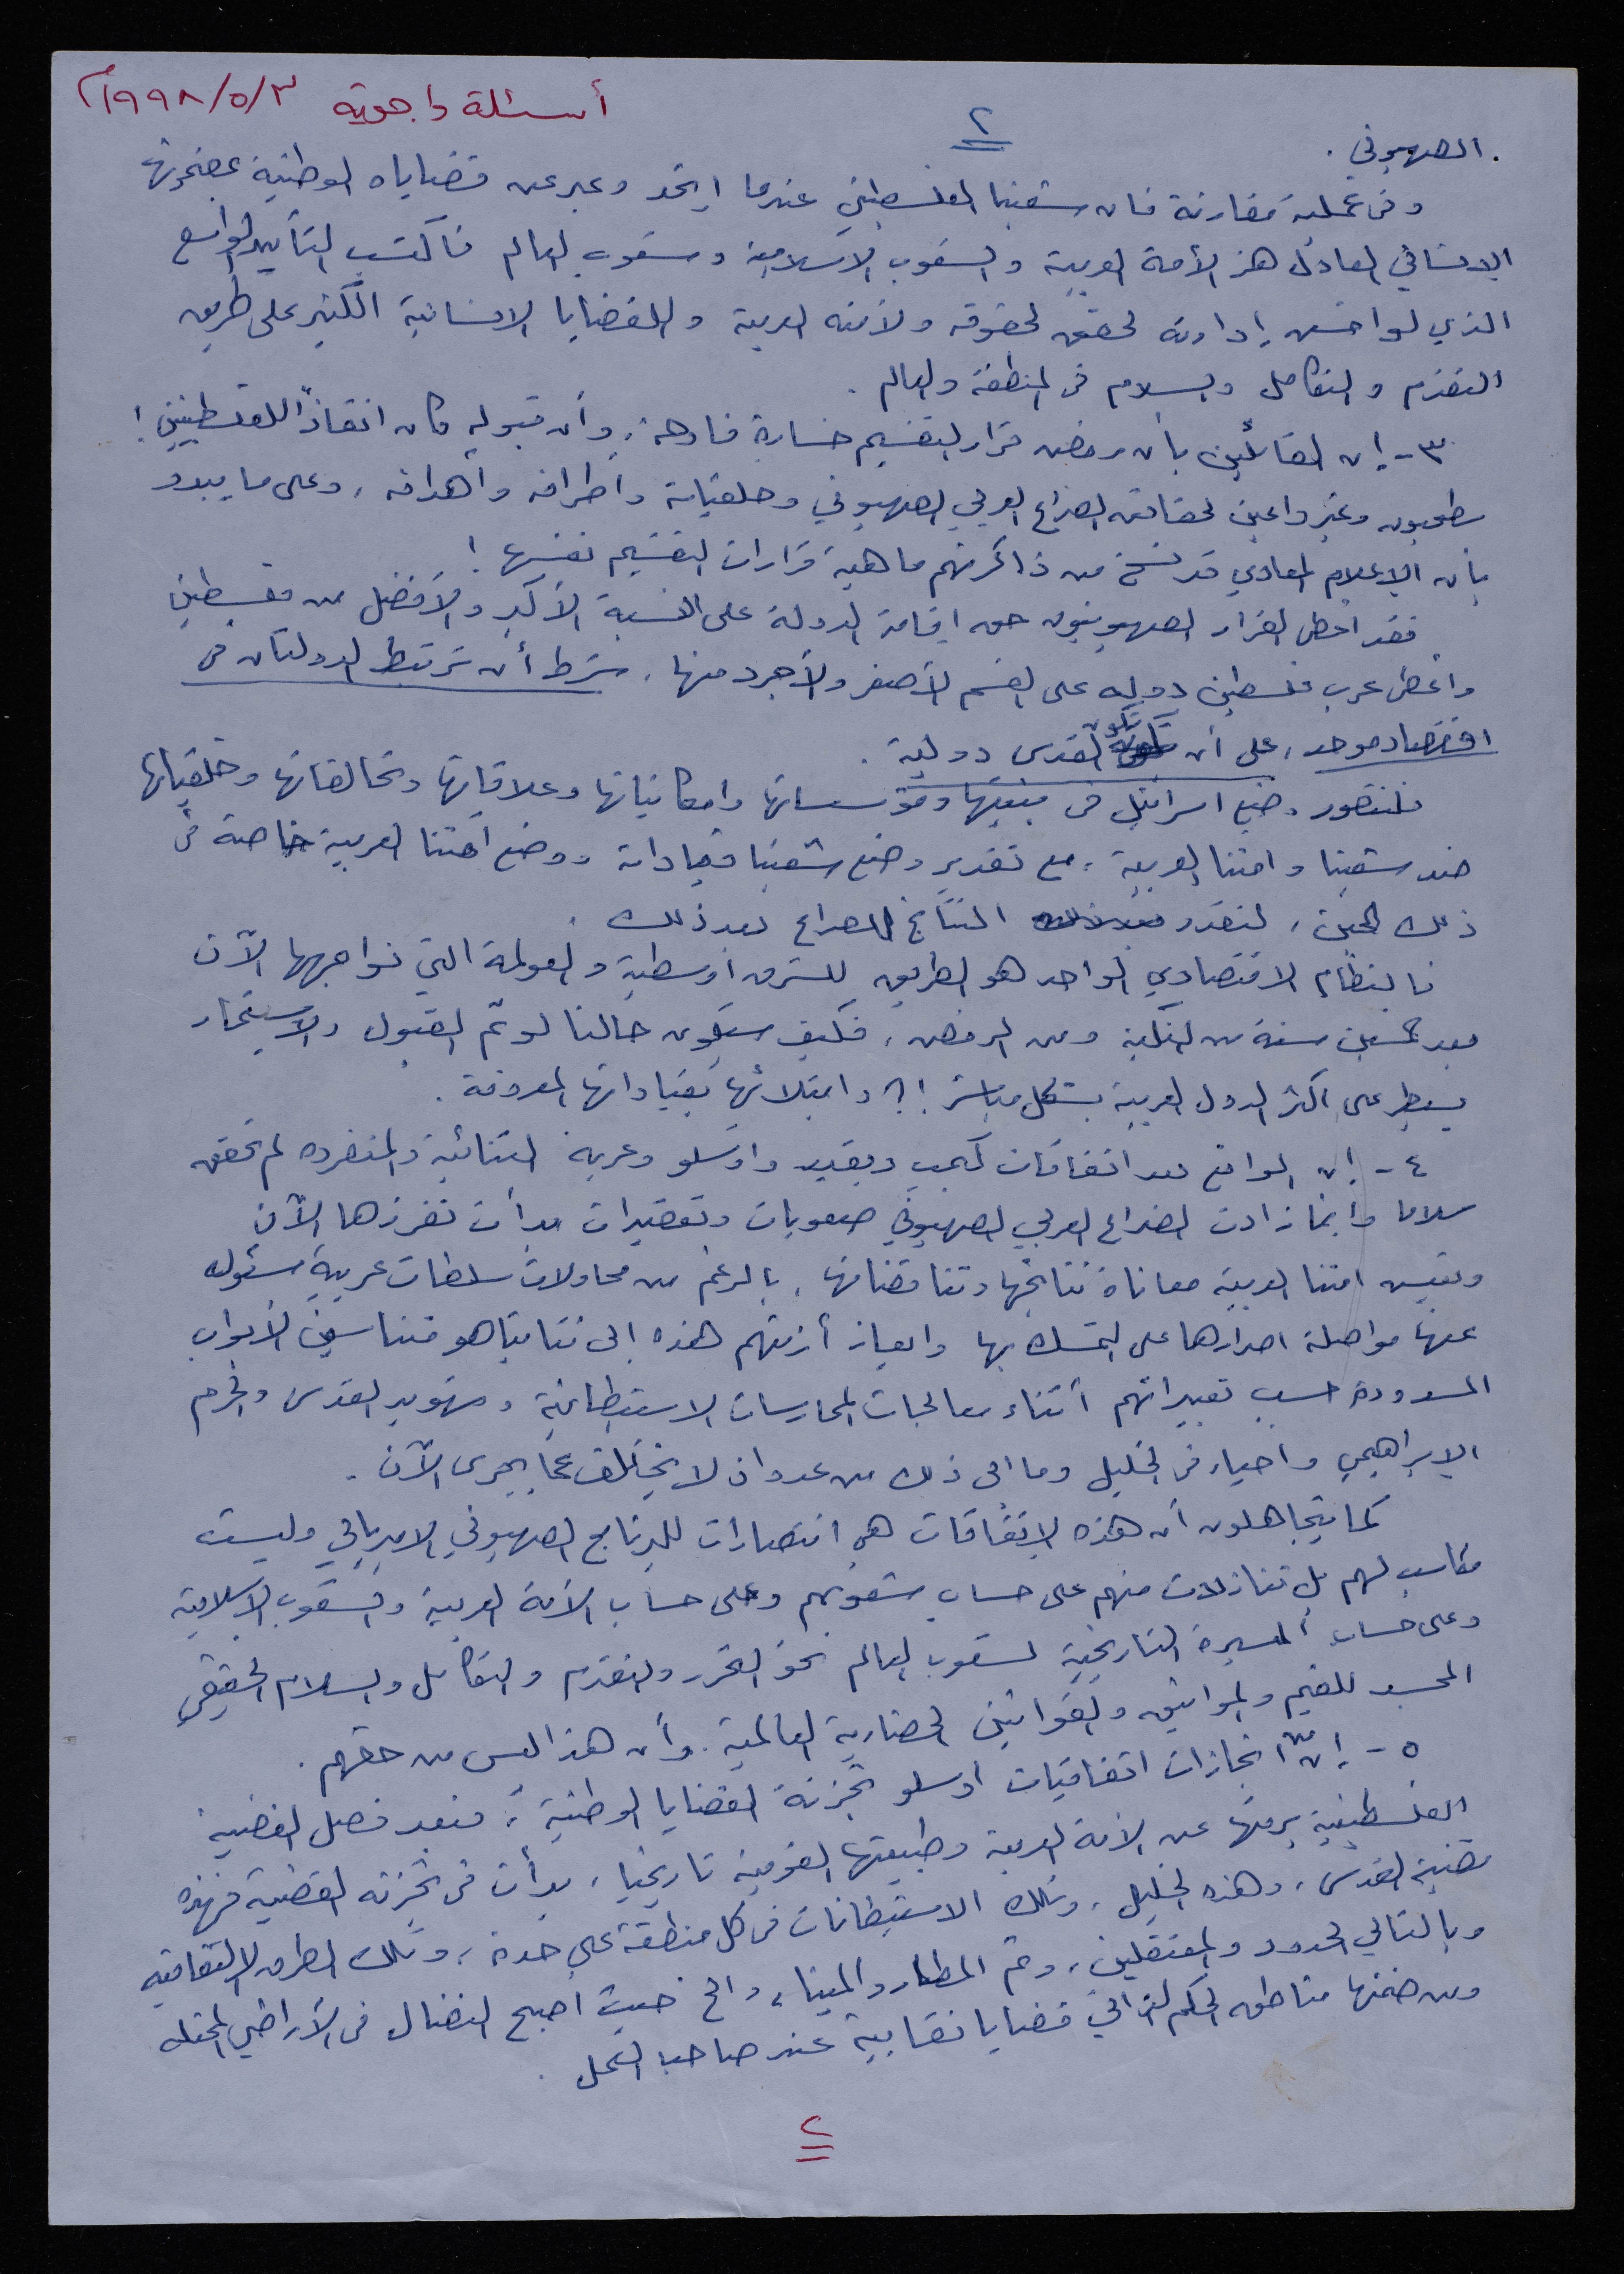 أسئلة واجوبة ٣/٥/١٩٩٨م
٢
الصهيوني .
وفي عملية مقارنة فان شعبنا الفلسطيني عندما اتحد وعبر عن قضاياه الوطنية بمضمونها
الانساني العادل هز الأمة العربية والشعوب الاسلامية وشعوب العالم فاكتسب التأييد الواسع
الذي لو احسن إدارته لحقق لحقوقه ولأمته العربية وللقضايا الانسانية الكثير على طريق
التقدم والتكامل والسلام في المنطقة والعالم .
٣- إن القائلين بأن رفض قرار التقسيم خسارة فادحة ، وأن قبوله كان انقاذاً للفلسطينيين !
سطحيون وغير واعين لحقائق الصراع العربي الصهيوني وخلفياته واطرافه واهدافه ، وعلى ما يبدو
بأن الاعلام المعادي قد نسخ من ذاكرتهم ماهية قرارات التقسيم نفسها !
فقد اعطى القرار الصهيونيين حق اقامة الدولة على النسبة الأكبر والأفضل من فلسطين
واعطى عرب فلسطين دولة على القسم الأصغر والأجرد منها ، شرط أن ترتبط الدولتان في
اقتصاد موحد ، على أن تكون القدس دولية .
فلنتصور وضع اسرائيل في بنيتها ومؤسساتها وامكانياتها وعلاقاتها وتحالفاتها وخلفياتها
ضد شعبنا وامتنا العربية ، مع تقدير وضع شعبنا وقياداته ووضع امتنا العربية خاصة في
ذلك الحين ، لنقدر النتائج للصراع بعد ذلك .
فالنظام الاقتصادي الواحد هو الطريق للشرق اوسطية والعولمة التي نواجهها الآن
بعد خمسين سنة من النكبة ومن الرفض ، فكيف ستكون حالنا لو تم القبول والاستعمار
يسيطر على اكثر الدول العربية بشكل مباشر !؟ وابتلائها بقياداتها المعروفة .
٤- إن الواقع بعد اتفاقات كمب ديفيد واوسلو وعربة الثنائية والمنفردة لم تحقق
سلاما وانما زادت الصراع العربي الصهيوني صعوبات وتعقيدات بدأت تفرزها الآن
وتعيش امتنا العربية معاناة نتائجها وتناقضاتها ، بالرغم من محاولات سلطات عربية مسئولة
عنها مواصلة اصرارها على التمسك بها وايعاز أزمتهم هذه إلى نتانياهو متناسين الأبواب
المسدودة حسب تعبيراتهم أثناء معالجات الممارسات الاستيطانية وتهويد القدس والحرم
الابراهيمي واحياء في الخليل وما الى ذلك من عدوان لا يختلف عما يجري الآن .
كما يتجاهلون أن هذه الاتفاقات هي انتصارات للبرنامج الصهيوني الامبريالي وليست
مكاسب لهم بل تنازلات منهم على حساب شعوبهم وعلى حساب الأمة العربية والشعوب الاسلامية
وعلى حساب المسيرة التاريخية لشعوب العالم نحو التحرر والتقدم والتكامل والسلام الحقيقي
المجسد للقيم والمواثيق والقوانين الحضارية العالمية . وأن هذا ليس من حقهم .
٥- إن من انجازات اتفاقيات اوسلو تجزئة القضايا الوطنية ، فبعد فصل القضية
الفلسطينية برمتها عن الأمة العربية وطبيعتها القومية تاريخيا ، بدأت في تجزئة القضية فهذه
قضية القدس ، وهذه الخليل ، وتلك الاستيطانات في كل منطقة على حدة ، وتلك الطرق الالتفافية
وبالتالي الحدود والمعتقلين ، وثم المطار والميناء ، والخ حيث اصبح النضال في الأراضي المحتلة
ومن ضمنها مناطق الحكم الذاتي قضايا نقابية عند صاحب العمل .
٢